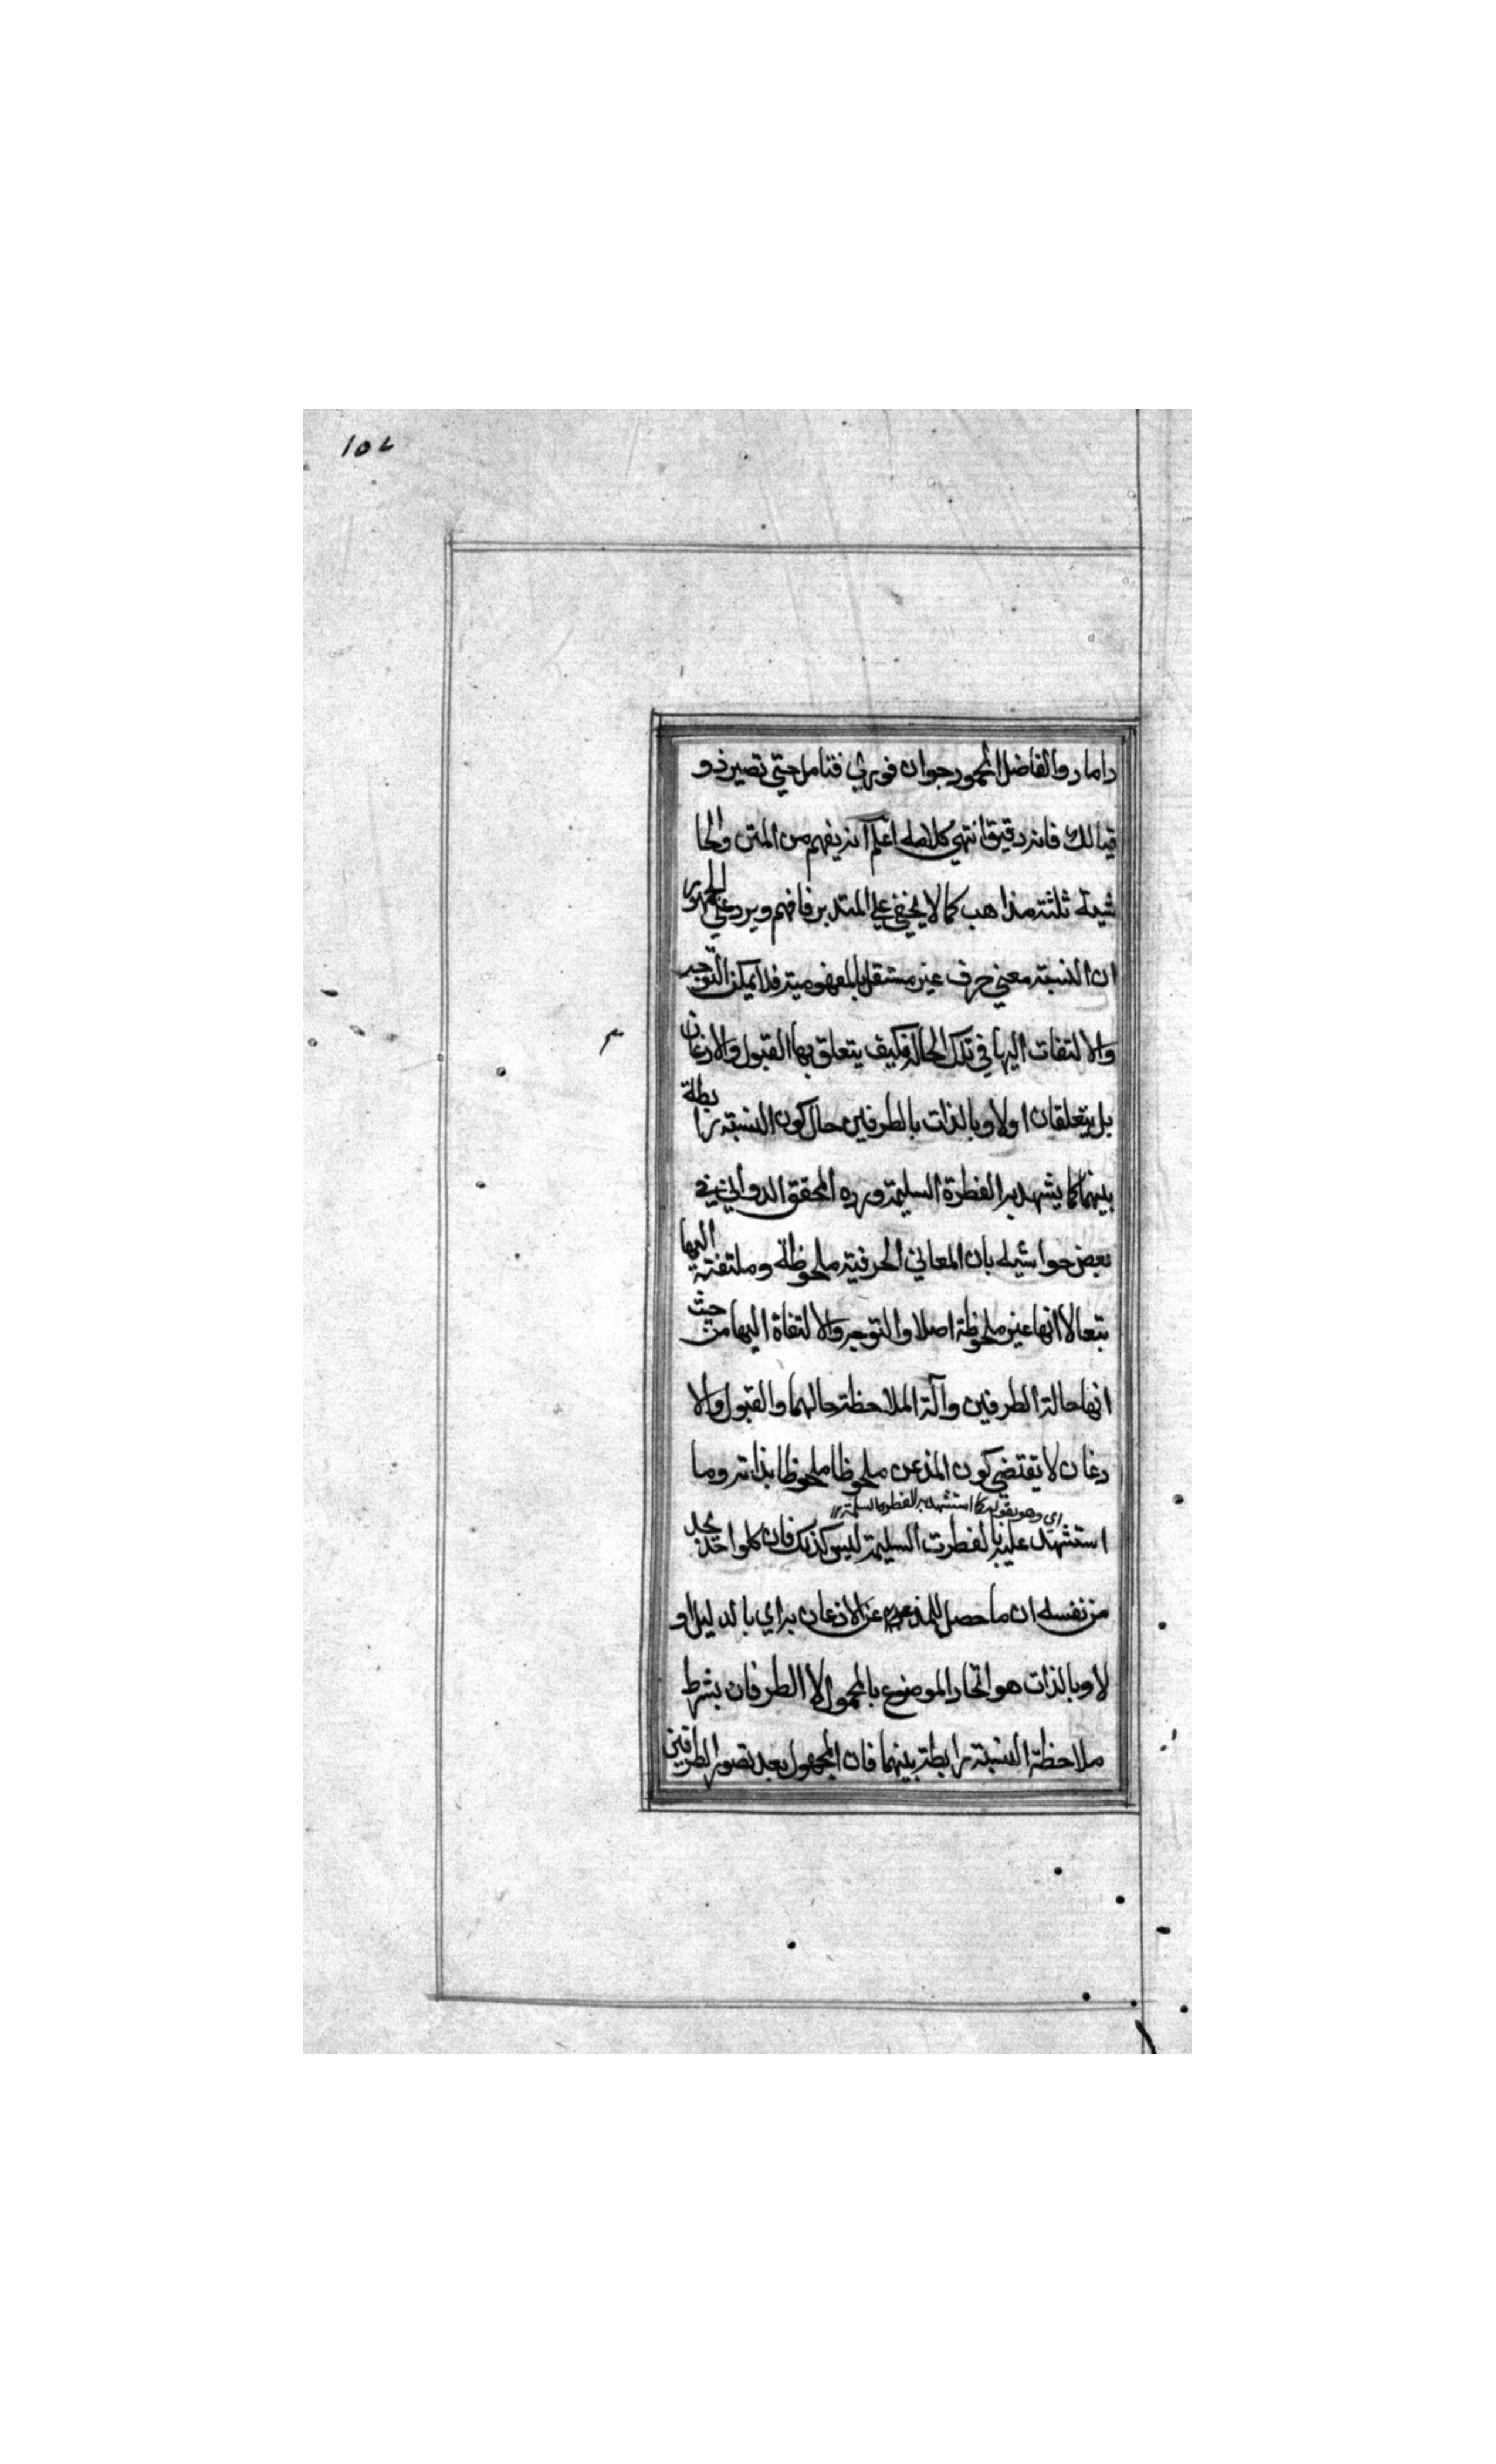 ١٥٧
داماد والفاضل المحمود جوان فوري فتامل حتى تصير ذو
قيالك فانه دقيق انتهى كلامه اعلم انه يفهم من المتن والحا
شيه ثلثة مذاهب كما لا يخفى على المتدبر فافهم ويرد على الجمهور
ان النسبة معنى حرف غير مستقل بالمفهومية فلا يمكن التوجه
والالتفات اليها في تلك الحالة فكيف يتعلق بها القبول والاذعان
بل يتعلقان اولا وبالذات بالطرفين حال كون النسبة رابطة
بينهما كما يشهد به الفطرة السليمة ورده المحقق الدواني في
بعض حواشيه بان المعاني الحرفية ملحوظة وملتفتة اليها
تبعا لا انها غير ملحوظة اصلا والتوجه والالتفاة اليها من حيث
انها حالة الطرفين وآلة الملاحظة حالهما والقبول والا
ذعان لا يقتضي كون المذعن ملحوظا ملحوظا بذاته وما
اي وهو بقوله كما استشهد به الفطرة السليمة
استشهد عليه بالفطرت السليمة ليس كذلك فان كلواحد يجد
من نفسه ان ما حصل للمذعن عن الاذعان براي بالدليل او
لا وبالذات هو اتحاد الموضوع بالمحمول لا الطرفان بشرط
ملاحظة النسبة رابطة بينهما فان المجهول بعد تصور الطرفين